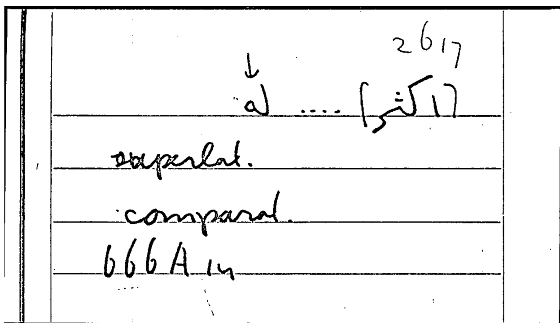 2617
[اكثر] .... له
superlat.
comparat.
666A